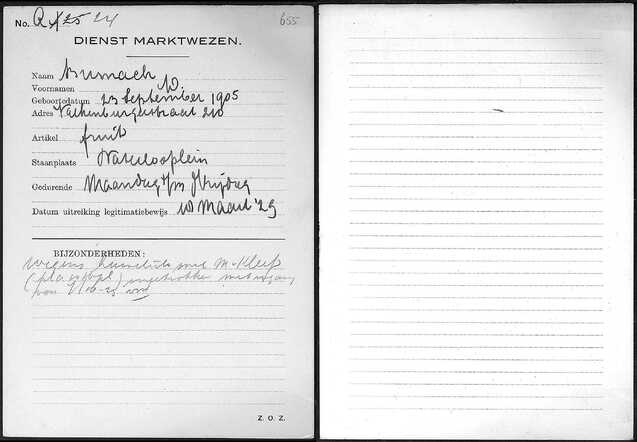 No. R 24
655
DIENST MARKTWEZEN.
Naam
Voornamen W.
Geboortedatum 23 September 1905
Adres Valkenburgerstraat 210
Artikel fruit
Staanplaats Waterlooplein
Gedurende Maandag t/m Vrijdag
Datum uitreiking legitimatiebewijs 10 Maart '29
BIJZONDERHEDEN:
wegens huwelijk met M.
ingetrokken met ingang
van
Z. O. Z.